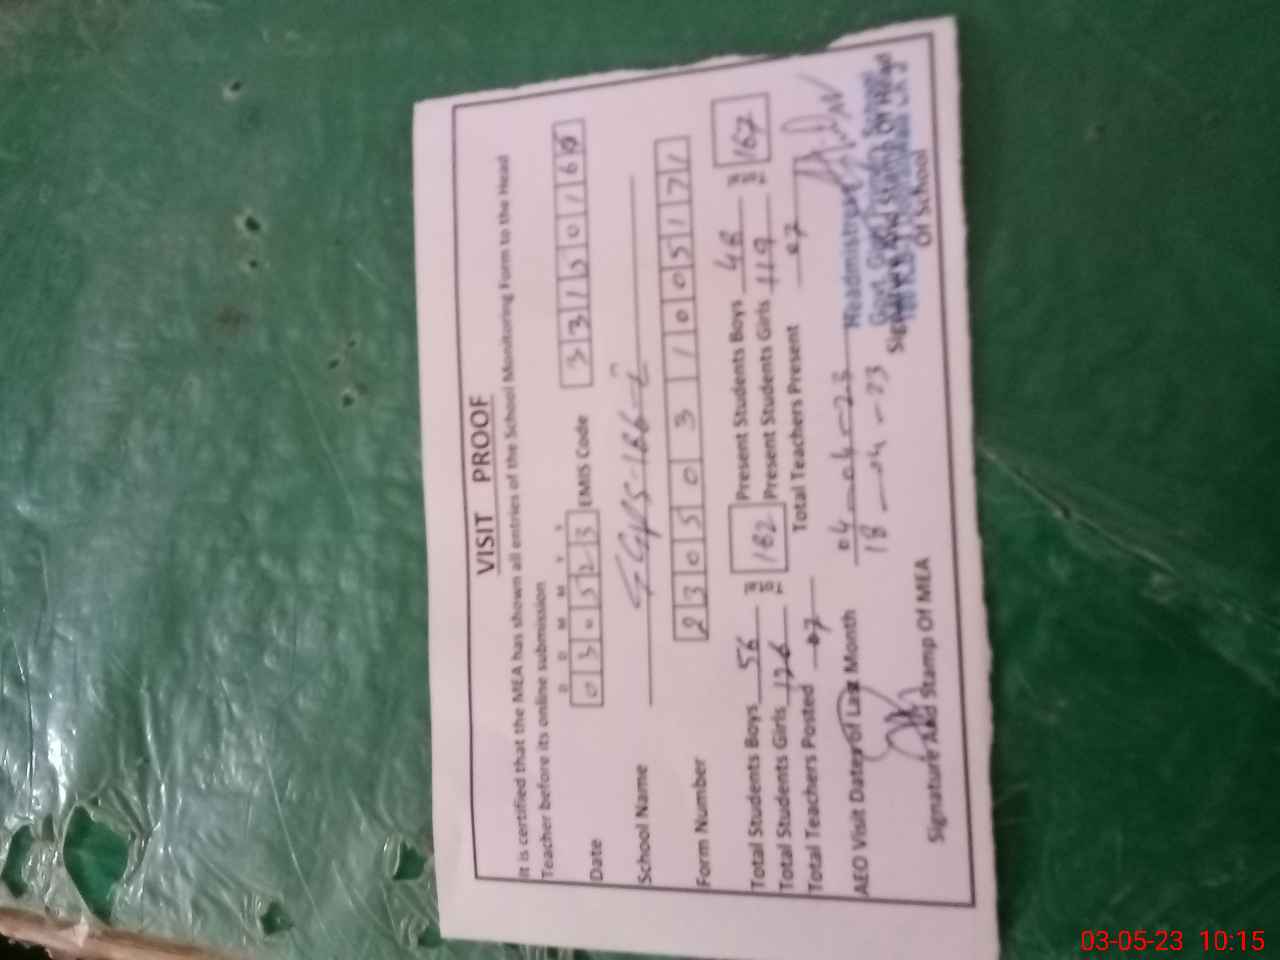 VISIT PROOF
It is certified that the MEA has shown all entries of the School Monitoring Form to the Head
Teacher before its online submission
D D M M Y Y
Date 0 3 0 5 2 3 EMIS Code 3 3 1 5 0 1 6 0
School Name GGPS-166-
Form Number 2 3 0 5 0 3 1 0 0 5 1 7 1
Total Students Boys 56 182 Present Students Boys 48 167
Total Students Girls 126 Present Students Girls 119
Total Teachers Posted 07 Total Teachers Present 07
AEO Visit Dates of Last Month 04-04-23
18-04-23
Headmistress
Govt. School
Signature And Stamp Of MEA
Signature And Stamp Of Head
Of School
03-05-23 10:15